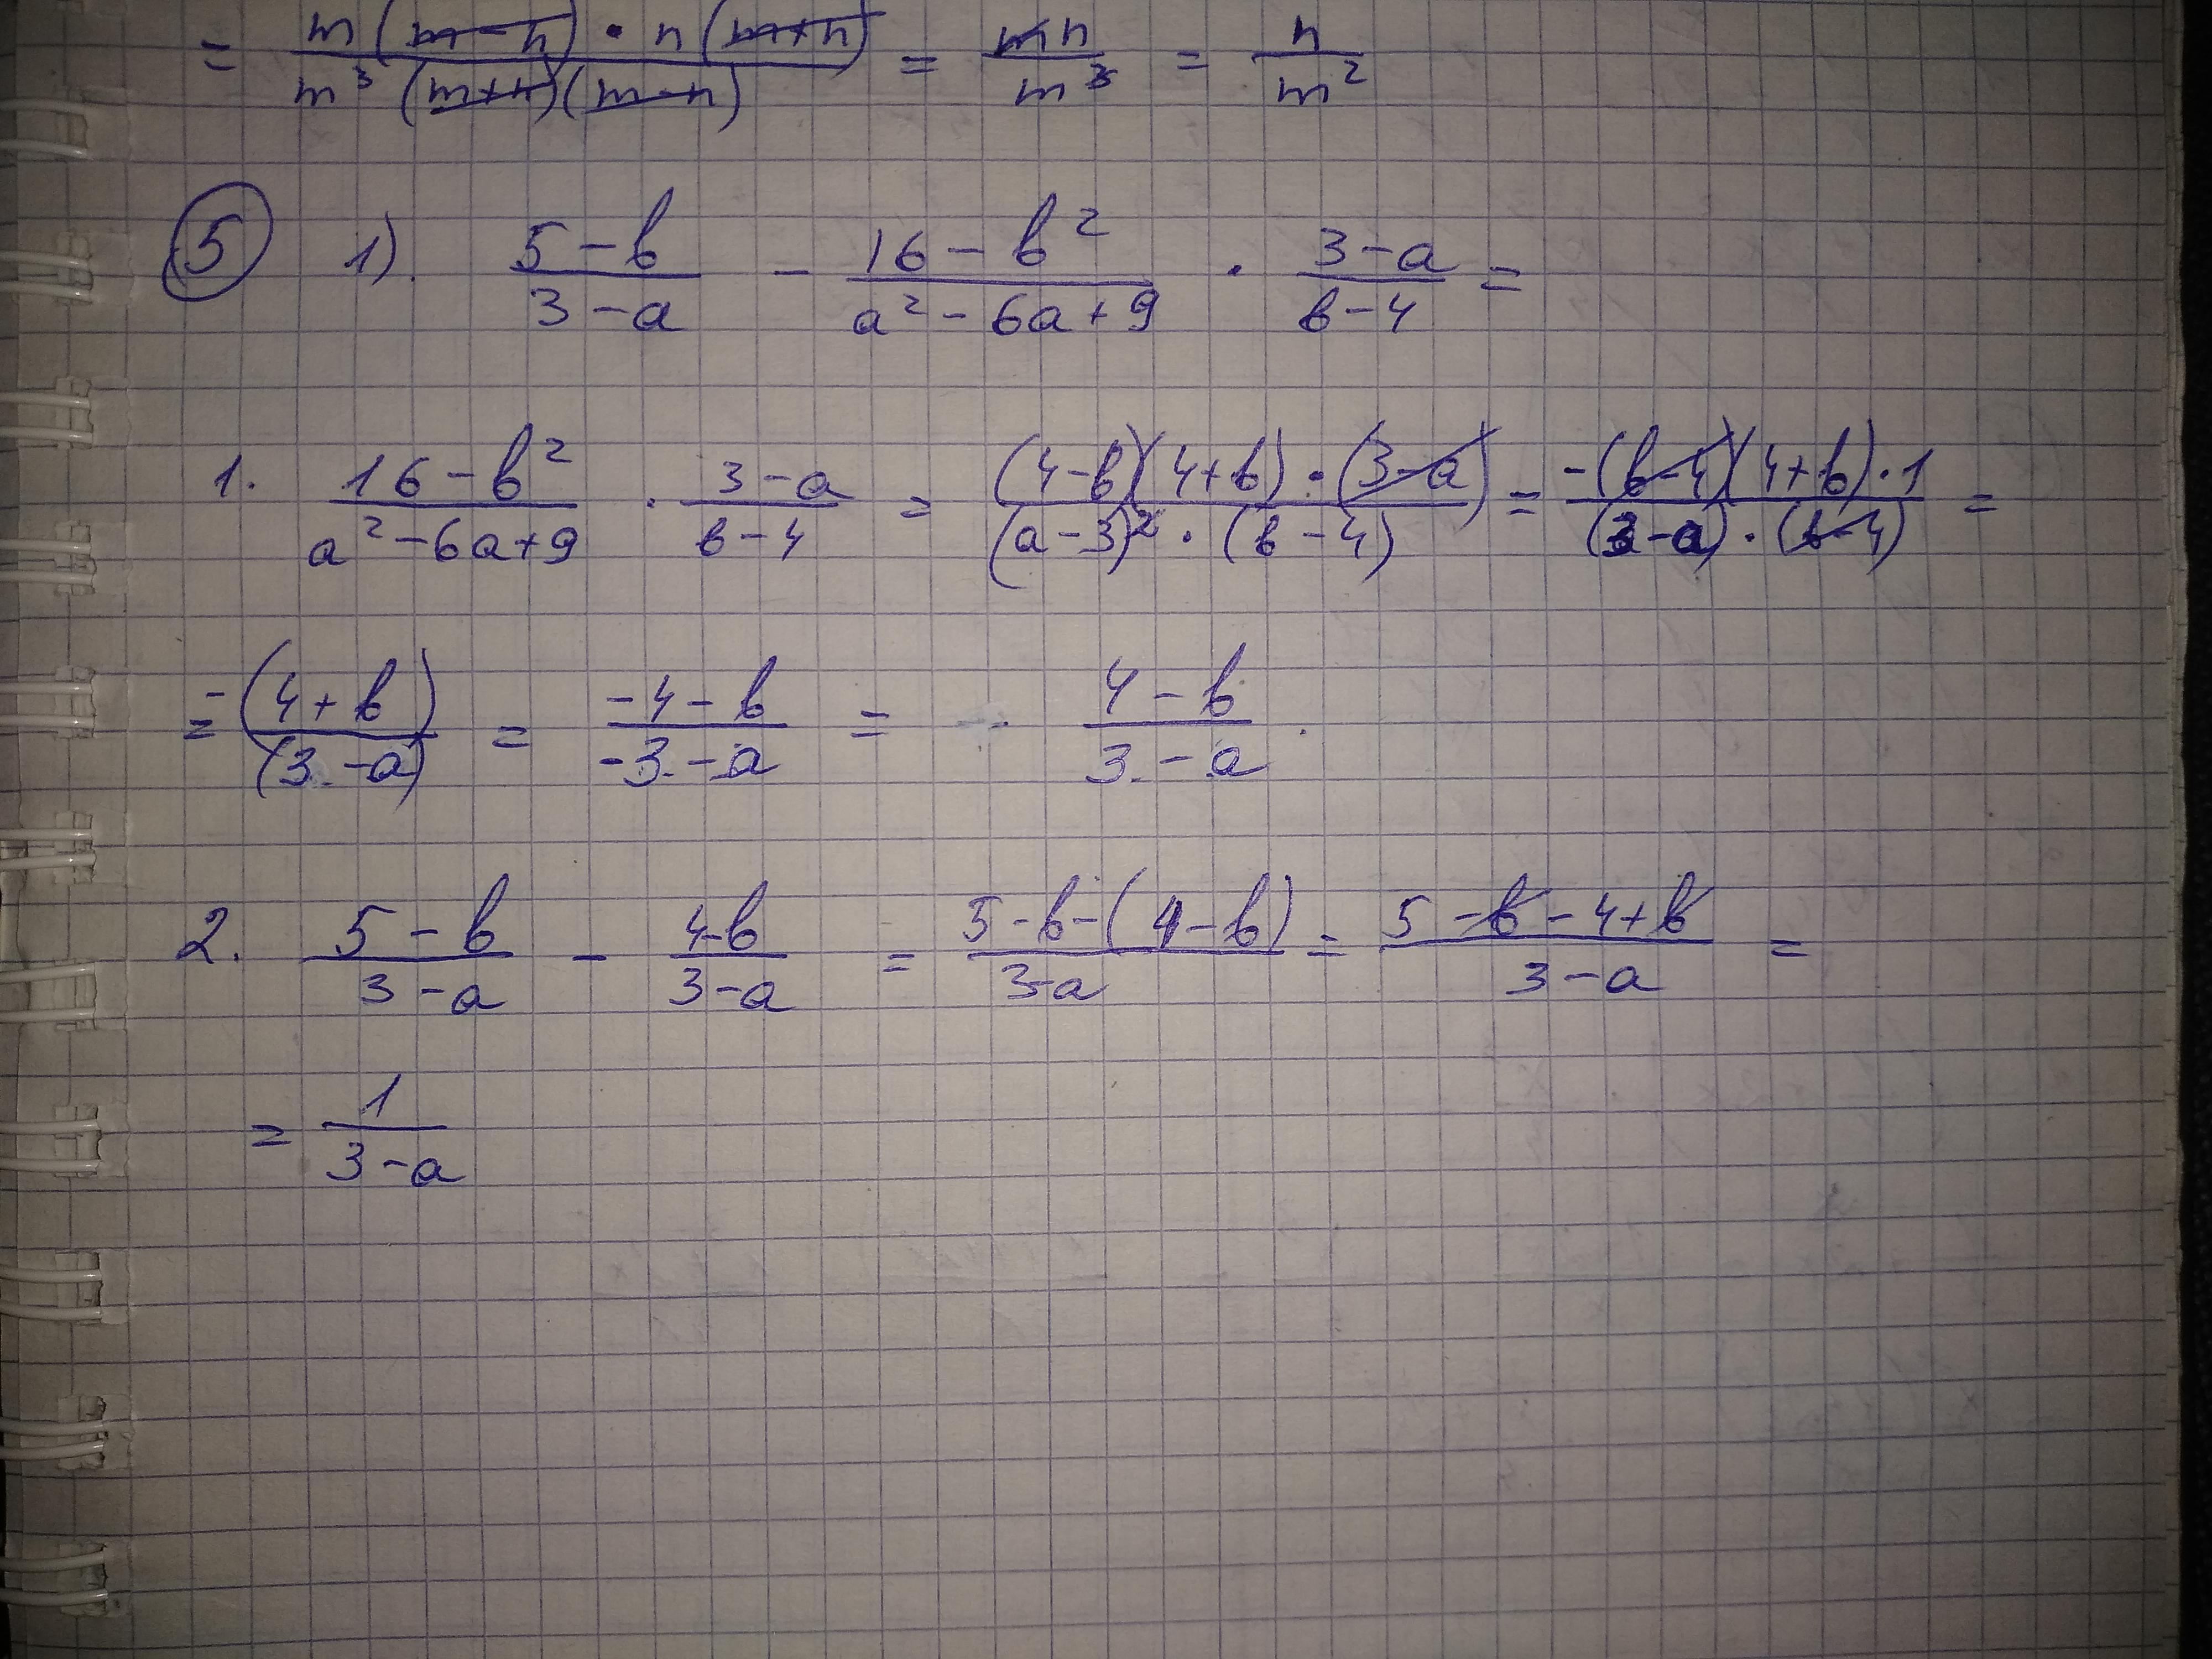 = m(m-n) · n(m+n) / m³(m+n)(m-n) = mn / m³ = n / m²
5 1). 5-b / 3-a - 16-b² / a²-6a+9 · 3-a / b-4 =
1. 16-b² / a²-6a+9 · 3-a / b-4 = (4-b)(4+b)·(3-a) / (a-3)²·(b-4) = -(b-4)(4+b)·1 / (3-a)·(b-4) =
= -(4+b) / (3-a) = -4-b / -3-a = 4-b / 3-a .
2. 5-b / 3-a - 4-b / 3-a = 5-b-(4-b) / 3-a = 5-b-4+b / 3-a =
= 1 / 3-a